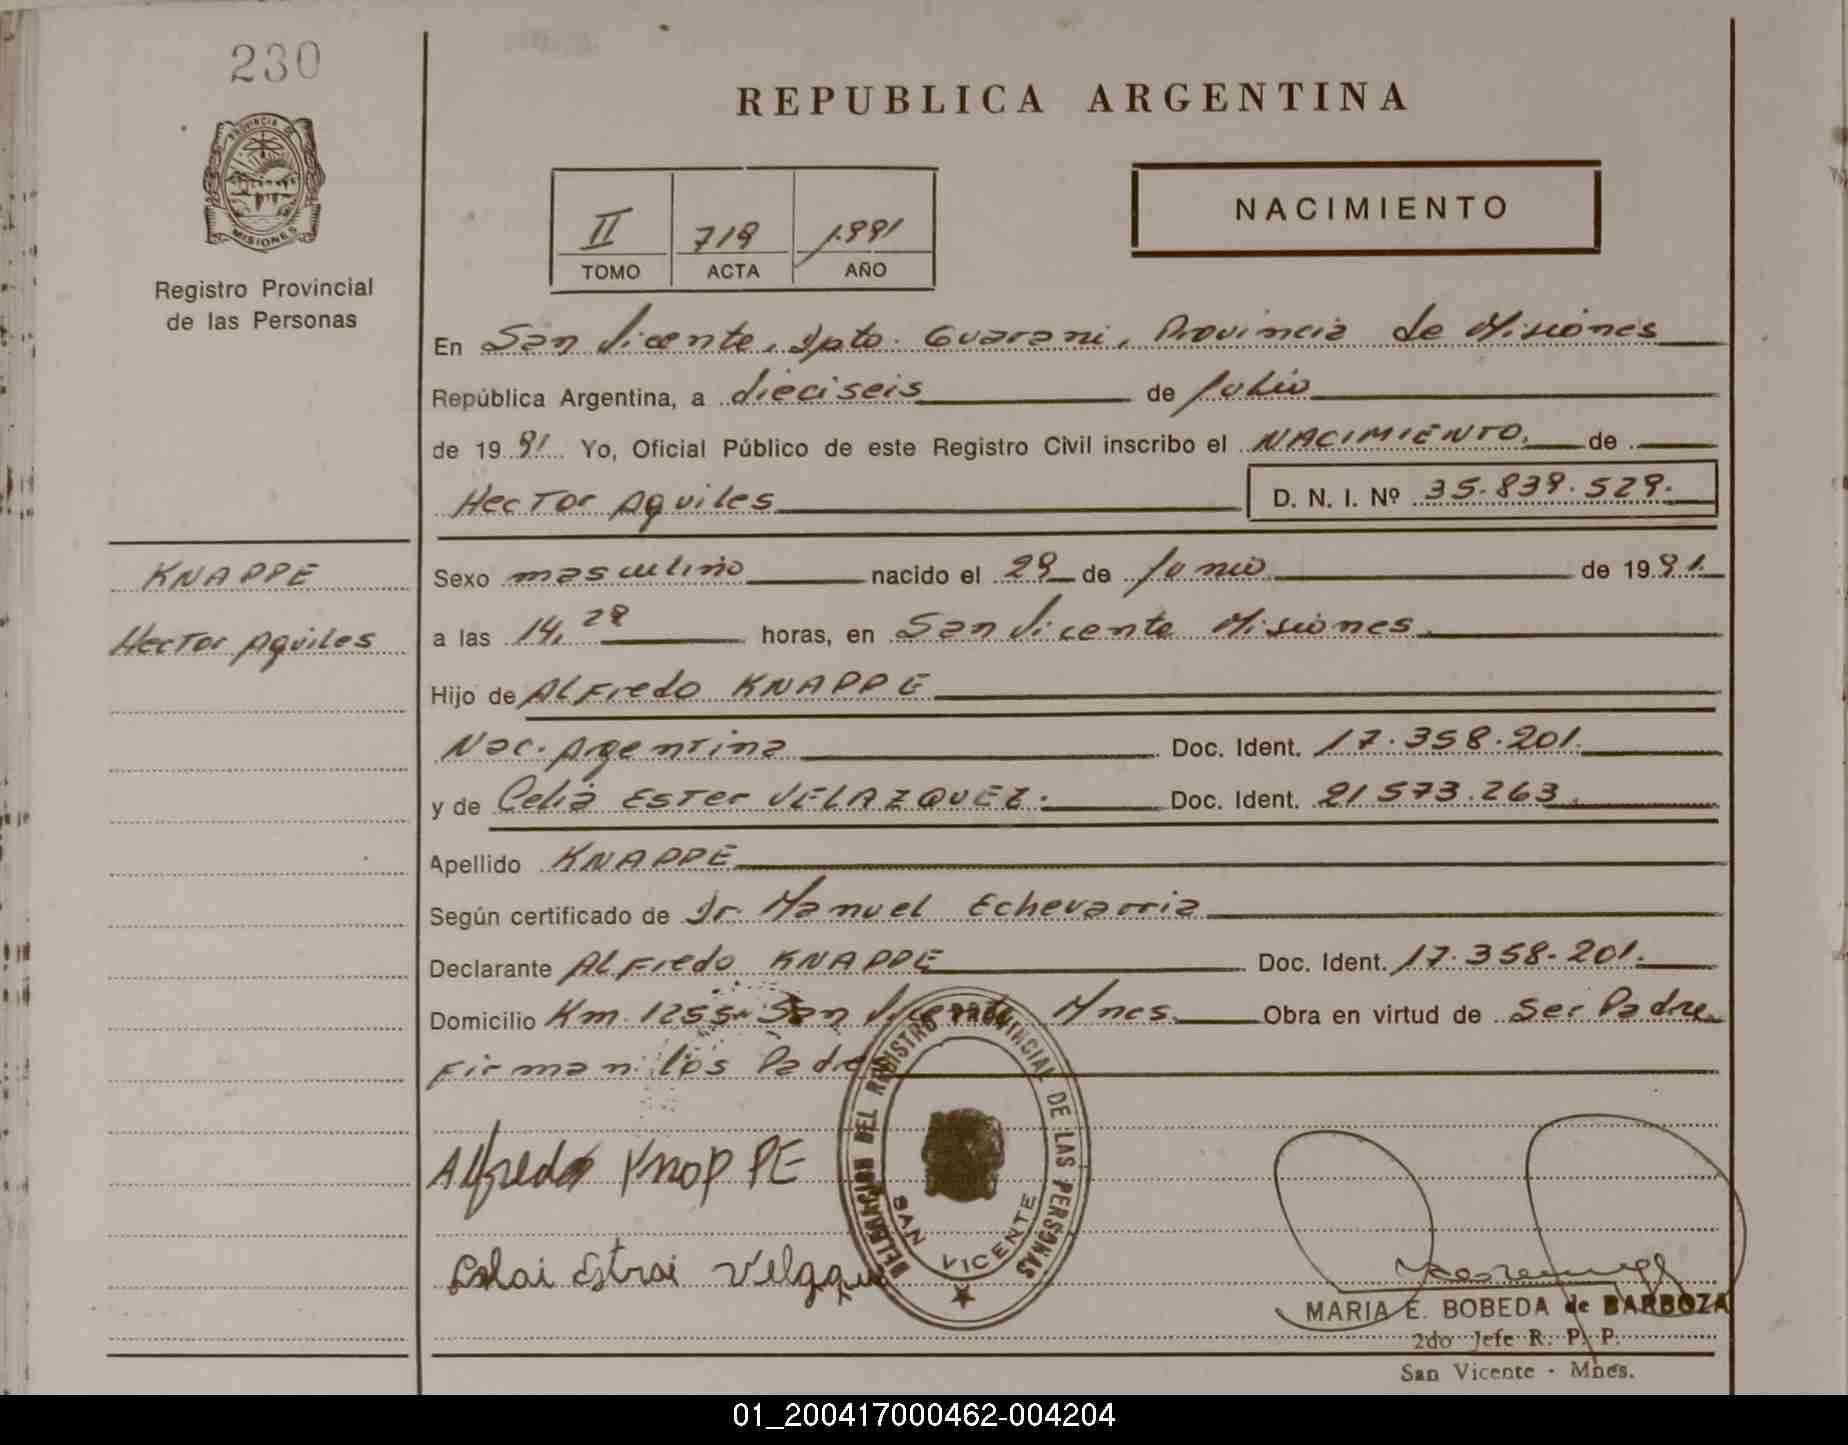 230
PROVINCIA DE
MISIONES
Registro Provincial
de las Personas
REPUBLICA ARGENTINA
II 719 1.991
TOMO ACTA AÑO
NACIMIENTO
En San Vicente, Dpto. Guarani, Provincia de Misiones
República Argentina, a dieciseis de Julio
de 19 91 Yo, Oficial Público de este Registro Civil inscribo el NACIMIENTO. de
Hector Aquiles D. N. I. Nº 35.839.529.
KNAPPE
Hector Aquiles
Sexo masculino nacido el 29 de Junio de 19 91.
a las 14, horas, en San Vicente Misiones.
Hijo de Alfredo KNAPPE
Nac. Argentina Doc. Ident. 17.358.201.
y de Celia Ester VELAZQUEZ. Doc. Ident. 21.573.263.
Apellido KNAPPE
Según certificado de Dr. Manuel Echevarria
Declarante Alfredo KNAPPE Doc. Ident. 17.358.201.
Domicilio Km. 1255 San Vicente Mnes. Obra en virtud de Ser Padre
Firman los Padres
DELEGACION DEL REGISTRO PROVINCIAL DE LAS PERSONAS
SAN VICENTE
Alfredo KnopPE
MARIA E. BOBEDA de BARBOZA
2do Jefe R. P. P.
San Vicente - Mnes.
01_200417000462-004204